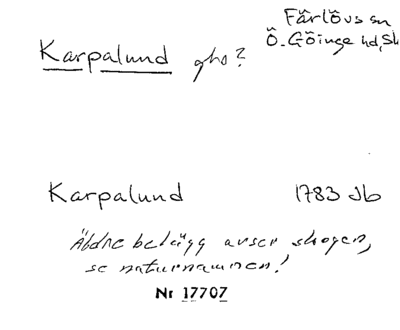 Färlövs sn
Karpalund gho? Ö. Göinge hd, Sk
Karpalund 1783 Jb
Äldre belägg avser skogen,
se naturnamnen!
Nr 17707